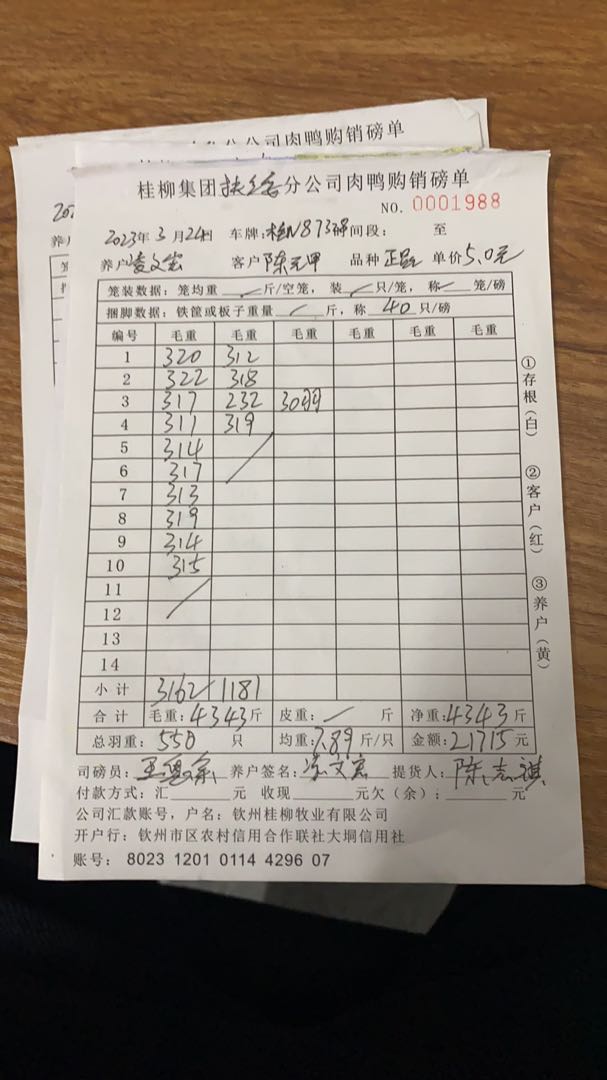 公司肉鸭购销磅单
桂柳集团扶绥分公司肉鸭购销磅单
NO. 0001988
2023年3月24日 车牌:桂N873 时间段: 至
养户 凌文宏 客户 陈元甲 品种 单价 5.0元
笼装数据: 笼均重 / 斤/空笼, 装 / 只/笼, 称 / 笼/磅
捆脚数据: 铁筐或板子重量 / 斤, 称 40 只/磅
编号 毛重 毛重 毛重 毛重 毛重 毛重
1 320 312
2 322 318
3 317 232 30羽
4 311 319
5 314
6 317
7 313
8 319
9 314
10 315
11
12
13
14
小计 3162 1181
合计 毛重:4343斤 皮重: / 斤 净重:4343斤
总羽重: 550 只 均重:7.89斤/只 金额:21715元
司磅员: 养户签名: 凌文宏 提货人: 陈志祺
付款方式: 汇 元 收现 元欠(余): 元
公司汇款账号, 户名: 钦州桂柳牧业有限公司
开户行: 钦州市区农村信用合作联社大垌信用社
账号: 8023 1201 0114 4296 07
①存根(白)
②客户(红)
③养户(黄)